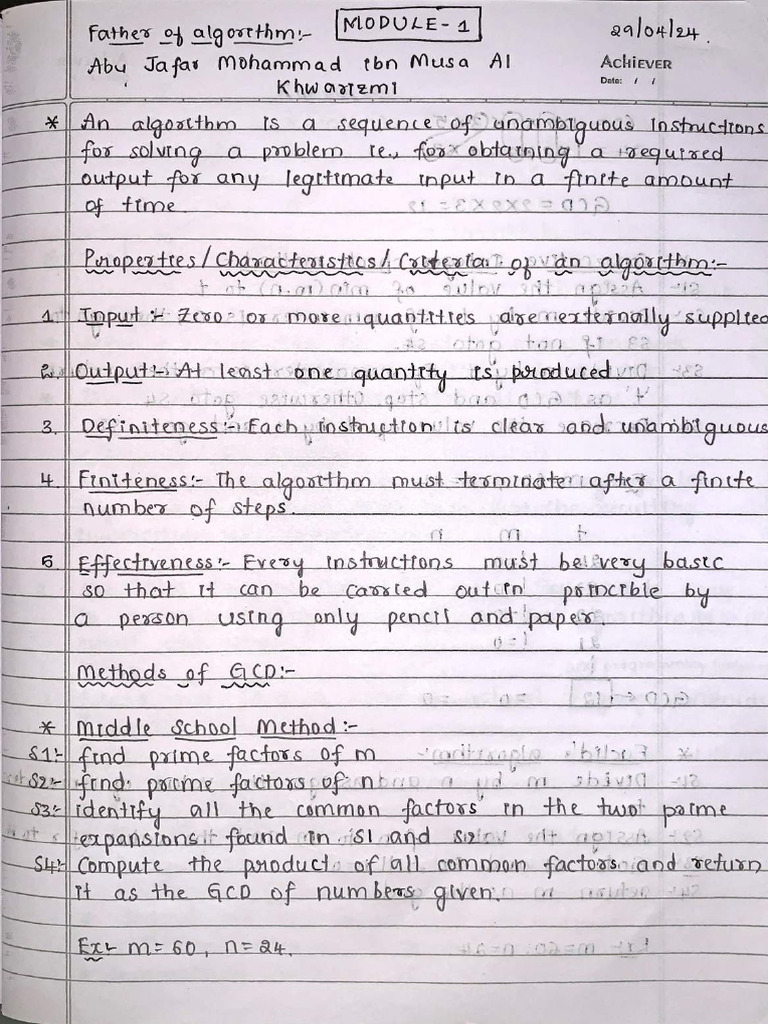 MODULE - 1
Father of algorithm:-
29/04/24.
Abu Jafar Mohammad ibn Musa Al
Khwarizmi
ACHIEVER
Date: / /
* An algorithm is a sequence of unambiguous instructions
for solving a problem ie., for obtaining a required
output for any legitimate input in a finite amount
of time
Properties/Characteristics/Criteria of an algorithm:-
1. Input:- Zero or more quantities are externally supplied
2. Output:- At least one quantity is produced
3. Definiteness:- Each instruction is clear and unambiguous
4. Finiteness:- The algorithm must terminate after a finite
number of steps.
5. Effectiveness:- Every instructions must be very basic
so that it can be carried out in princible by
a person using only pencil and paper.
Methods of GCD:-
* Middle School Method:-
S1:- find prime factors of m
S2:- find prime factors of n
S3:- identify all the common factors in the two prime
expansions found in S1 and S2
S4:- Compute the product of all common factors and return
it as the GCD of numbers given.
Ex:- m=60, n=24.